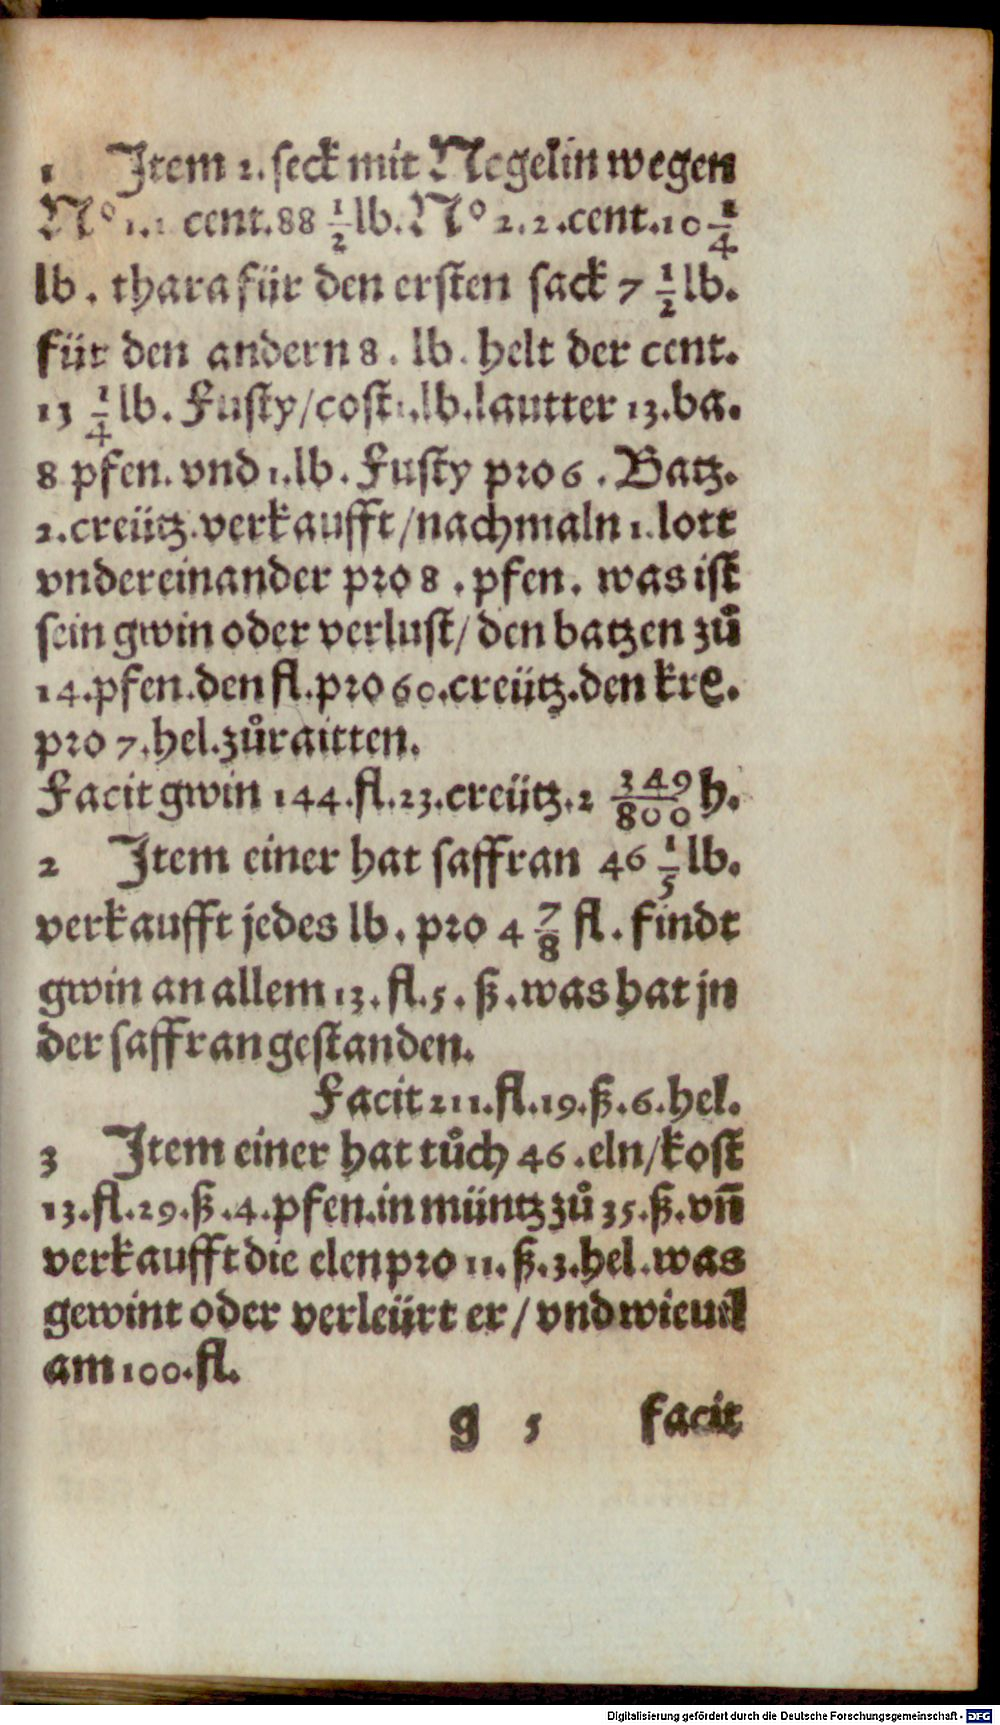 1 Item 2. seck mit Negelin wegen
No 1.1 cent. 88 1/2 lb. No 2. 2. cent. 10 1/4
lb. thara für den ersten sack 7 1/2 lb.
für den andern 8. lb. helt der cent.
13 1/4 lb. Fusty/cost 1. lb. lautter 13. ba.
8 pfen. vnd 1. lb. Fusty pro 6. Batz.
2. creütz. verkaufft/nachmaln 1. lott
vndereinander pro 8. pfen. was ist
sein gwin oder verlust/den batzen zů
14. pfen. den fl. pro 60. creütz. den krę.
pro 7. hel. zůraitten.
Facit gwin 144. fl. 23. creütz. 2 349/800 h.
2 Item einer hat saffran 46 1/5 lb.
verkaufft jedes lb. pro 4 7/8 fl. findt
gwin an allem 13. fl. 5. ß. was hat jn
der saffran gestanden.
Facit 211. fl. 19. ß. 6. hel.
3 Item einer hat tůch 46. eln/kost
13. fl. 29. ß. 4. pfen. in müntz zů 35. ß. vñ
verkaufft die elen pro 11. ß. 3. hel. was
gewint oder verleürt er/vnd wieuil
am 100. fl.
g 5 facit
Digitalisierung gefördert durch die Deutsche Forschungsgemeinschaft - DFG